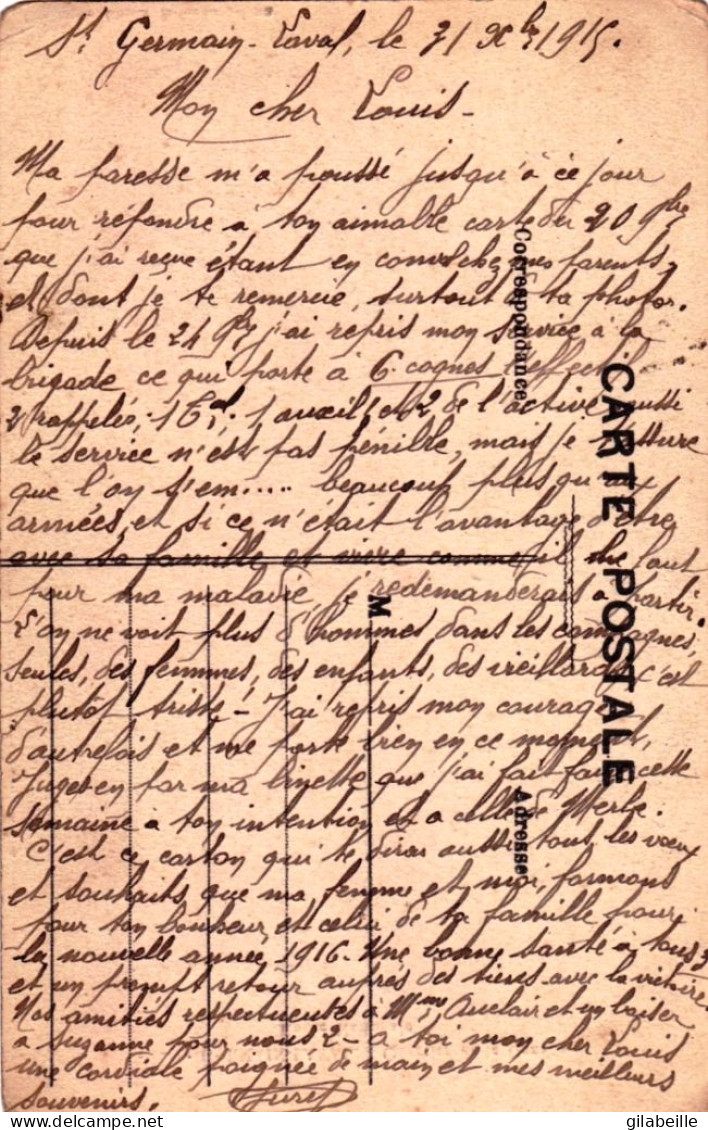 St Germain-Laval, le 31 Xbre 1915.
Mon cher Louis-
Ma paresse m'a poussé jusqu'à ce jour
pour répondre à ton aimable carte du 20 9bre
que j'ai reçue étant en conv. chez mes parents,
et dont je te remercie, surtout de ta photo.
Depuis le 24 9bre j'ai repris mon service à la
brigade ce qui porte à 6 cognes l'effectif
2 rappelés, 1 , 1 auxil. et 2 de l'active, aussi
le service n'est pas pénible, mais je t'assure
que l'on s'em.... beaucoup plus qu'aux
armées, et si ce n'était l'avantage d'être
avec sa famille et vivre comme il me faut
pour ma maladie, je redemanderais à partir.
L'on ne voit plus d'hommes dans les campagnes,
seules, des femmes, des enfants, des vieillards, c'est
plutôt triste- J'ai repris mon courage
d'autrefois et me porte bien en ce moment,
Juges-en par ma binette que j'ai fait faire cette
semaine à ton intention et à celle de Merle.
C'est ce carton qui te dira aussi tout les vœux
et souhaits que ma femme et moi, formons
pour ton bonheur et celui de ta famille pour
la nouvelle année 1916. Une bonne santé à tous 3
et un prompt retour auprès des tiens avec la victoire.
Nos amitiés respectueuses à Mme Auclair et un baiser
à Suzanne pour nous 2- à toi mon cher Louis
une cordiale poignée de main et mes meilleurs
souvenirs.
CARTE POSTALE
Correspondance
Adresse
M
delcampe.net
gilabeille